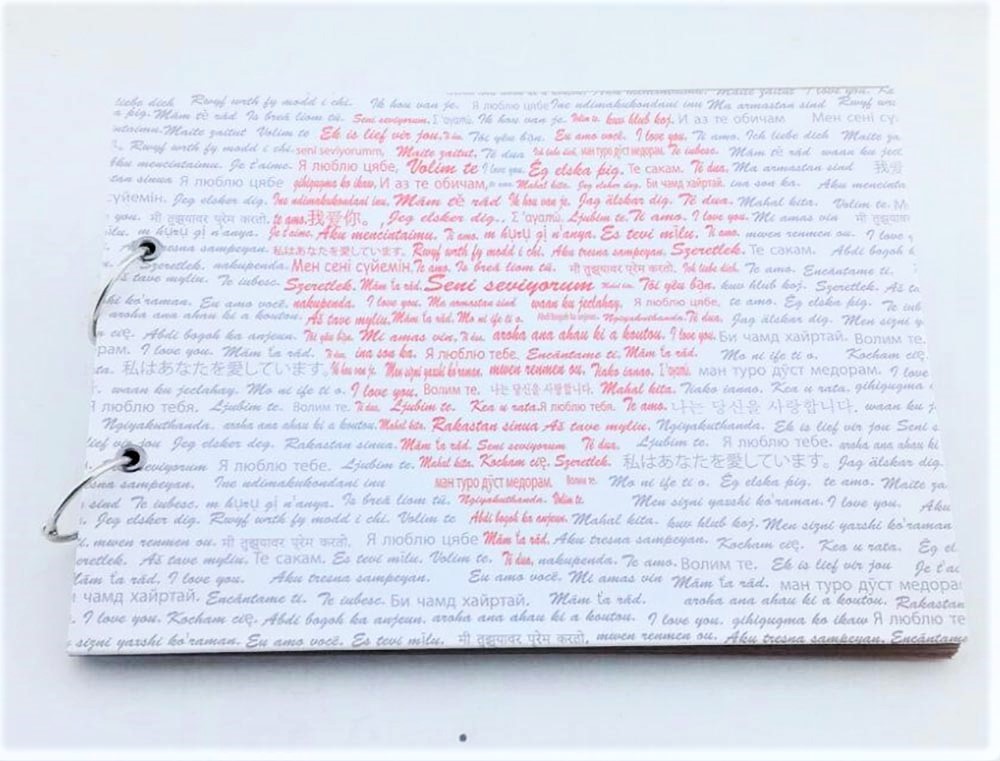 liebe dich Rwyf wrth fy modd i chi. Ik hou van je. Я люблю цябе Ine ndimakukondani inu Ma armastan sind Rwyf
a pig. Mám tě rád Is breá liom tú. Seni seviyorum. Σ 'αγαπώ. Ik hou van je. kuv hlub koj. И аз те обичам Мен сені
Maite zaitut Volim te. Ek is lief vir jou. Tôi yêu bạn. Eu amo você. I love you. Ti amo. Ich liebe dich Maite
Rwyf wrth fy modd i chi. seni seviyorumm. Maite zaitut. Te dua ман туро дӯст медорам. Te iubesc. Mám tě rád waan ku
mencintaimu. Je t'aime. Я люблю цябе, Volim te I love you. Ég elska þig. Те сакам. Te dua. Ma armastan sind 我爱
sinua Я люблю цябе gihigugma ko ikaw. И аз те обичам, Mahal kita. Jeg elsker dig. Би чамд хайртай. ina son ka. Aku
сүйемін. Jeg elsker dig. Ine ndimakukondani inu. Mám tě rád Is breá liom tú. Jag älskar dig. Të dua. Mahal kita. Volim te.
you. मी तुझ्यावर प्रेम करतो. te amo. 我爱你。, Jeg elsker dig., Σ 'αγαπώ. Ljubim te. Ti amo. I love you. Mi amas vin मी
m hụrụ gị n'anya. Je t'aime. Aku mencintaimu. Ti amo. m hụrụ gị n'anya. Es tevi mīlu. Ti amo. mwen renmen ou. I love
tresna sampeyan. 私はあなたを愛しています。 Rwyf wrth fy modd i chi. Aku tresna sampeyan. Szeretlek. Те сакам. Abdi bogoh
Szeretlek. nakupenda. Мен сені сүйемін. Te amo. Is breá liom tú. मी तुझ्यावर प्रेम करतो. Ich liebe dich Te amo. Encántame ti.
tave myliu. Te iubesc. Szeretlek. Mám ťa rád. Seni seviyorum Tôi yêu bạn. kuv hlub koj. Szeretlek. Aš
ko'raman. Eu amo você. nakupenda. I love you. Ma armastan sind waan ku jeclahay. Я люблю цябе, te amo. Ég elska þig. Te
aroha ana ahau ki a koutou. Aš tave myliu. Mám ťa rád. Mo ni ife ti o. Abdi bogoh ka anjeun. Ngiyakuthanda. Te dua. Jag älskar dig. Men sizni
cię. Abdi bogoh ka anjeun. Tôi yêu bạn. Mi amas vin. aroha ana ahau ki a koutou. I love you. Би чамд хайртай. Волим те.
I love you. Mám ťa rád. ina son ka. Я люблю тебе. Encántame ti. Mám ťa rád. Mo ni ife ti o. Kocham cię.
私はあなたを愛しています。 Ik hou van je. Men sizni yaxshi ko'raman. mwen renmen ou. Tiako ianao. Σ 'αγαπώ. ман туро дӯст медорам. I love
waan ku jeclahay. Mo ni ife ti o. I love you. Волим те. 나는 당신을 사랑합니다. Mahal kita. Tiako ianao. Kea u rata. gihigugma
Я люблю тебя. Ljubim te. Волим те. Ti dua. Ljubim te. Kea u rata. Я люблю тебя. Te amo. 나는 당신을 사랑합니다. waan ku
Ngiyakuthanda. aroha ana ahau ki a koutou. Mahal kita. Rakastan sinua Aš tave myliu. Ngiyakuthanda. Ek is lief vir jou Seni
lief vir jou Jeg elsker deg. Rakastan sinua. Mám ťa rád. Seni seviyorum Të dua. Ljubim te. Я люблю тебе. aroha ana ahau
seviyorum Я люблю тебе. Ljubim te. Mahal kita. Kocham cię. Szeretlek. 私はあなたを愛しています。 Jag älskar dig.
sampeyan. Ine ndimakukondani inu ман туро дӯст медорам. Волим те. Mo ni ife ti o. Ég elska þig. te amo. Maite
sind Te iubesc. m hụrụ gị n'anya. Is breá liom tú. Ngiyakuthanda. Volim te. Men sizni yaxshi ko'raman. I love you.
Jeg elsker dig. Rwyf wrth fy modd i chi. Volim te Abdi bogoh ka anjeun. Mahal kita. kuv hlub koj. Men sizni yaxshi ko'raman
mwen renmen ou. मी तुझ्यावर प्रेम करतो. Я люблю цябе Mám ťa rád. Aku tresna sampeyan. Kocham cię. Kea u rata.
Aš tave myliu. Те сакам. Es tevi mīlu. Volim te. Ti dua, nakupenda. Te amo. Волим те. Ek is lief vir jou
rád. I love you. Aku tresna sampeyan. Eu amo você. Mi amas vin Mám ťa rád. ман туро дӯст
чамд хайртай. Encántame ti. Te iubesc. Би чамд хайртай. Mám ťa rád. aroha ana ahau ki a koutou. Rakastan
I love you. Kocham cię. Abdi bogoh ka anjeun. aroha ana ahau ki a koutou. I love you. gihigugma ko ikaw Я люблю
sizni yaxshi ko'raman. Eu amo você. Es tevi mīlu. मी तुझ्यावर प्रेम करतो. mwen renmen ou. Aku tresna sampeyan.